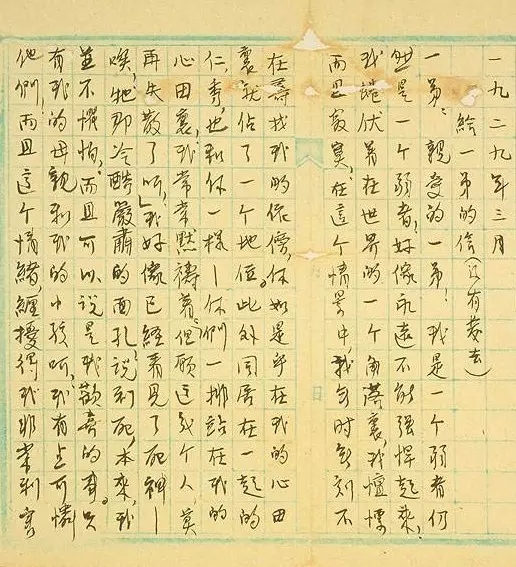 一九二九年三月
給一弟的信(只有茭去)
一弟,親愛的一弟!我是一个弱者何
一个弱者,好像永遠不能强悍起來,
我捲伏着在世界的一个角落裏,我
而且寂寞,在這个情景中,我無时無刻不
在尋找我的保傍,你如是乎在我的心田
裏就佔了一个地位。此外同居在一起的
仁,秀,也和你一樣—你們一排站在我的
心田裏,我常常默禱着,但願這幾个人莫
再失散了呵,我好像已經看見了死神—
唉,牠那冷酷嚴肅的面孔,說到死,本來,我
並不懼怕,而且可以說是我歡喜的事。只
有我的母親和我的小孩呵,我有点可憐
他們,而且這个情緒,纏擾得我非常利害